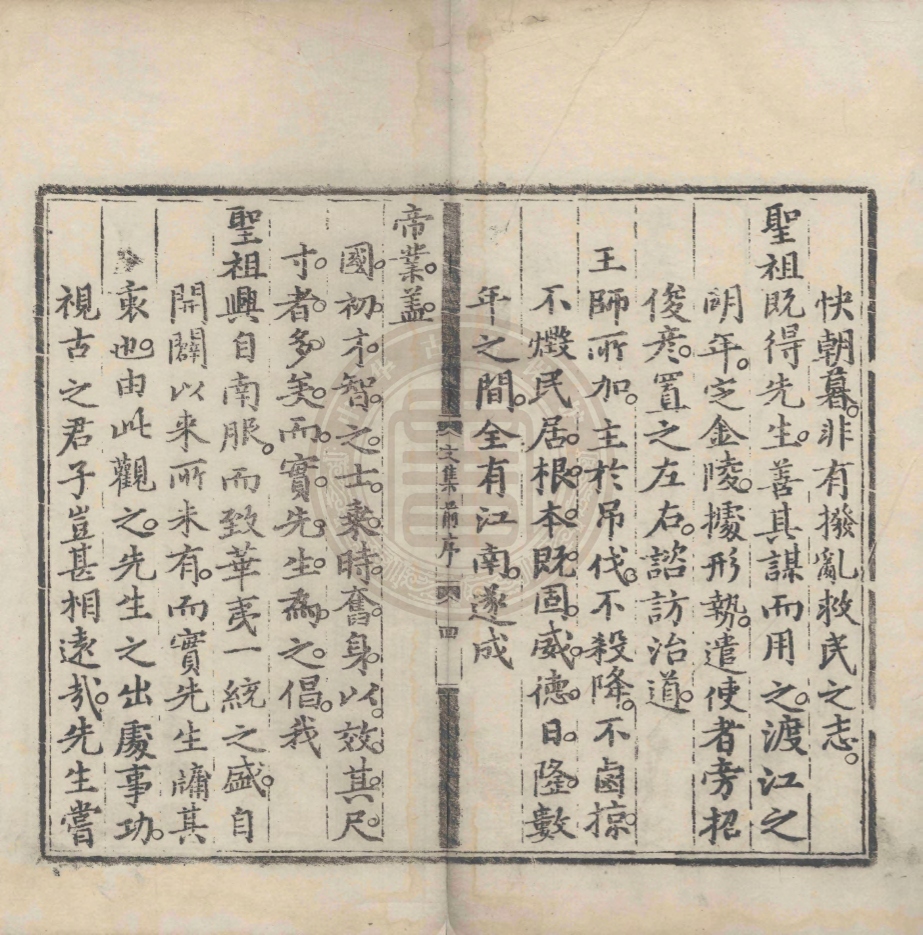 快朝暮。非有撥亂救民之志。
聖祖既得先生。善其謀而用之。渡江之
明年。定金陵。據形勢。遣使者旁招
俊彥。置之左右。諮訪治道。
王師所加。主於吊伐。不殺降。不鹵掠。
不燬民居。根本既固。威德日隆。數
年之間。全有江南。遂成
文集前序
四
帝業。盖。
國初才智之士。乘時奮身。以效其尺
寸者。多矣。而實先生為之倡。我
聖祖興自南服。而致華夷一統之盛。自
開闢以来所未有。而實先生牗其
衷也。由此觀之。先生之出處事功。
視古之君子豈甚相遠哉。先生嘗